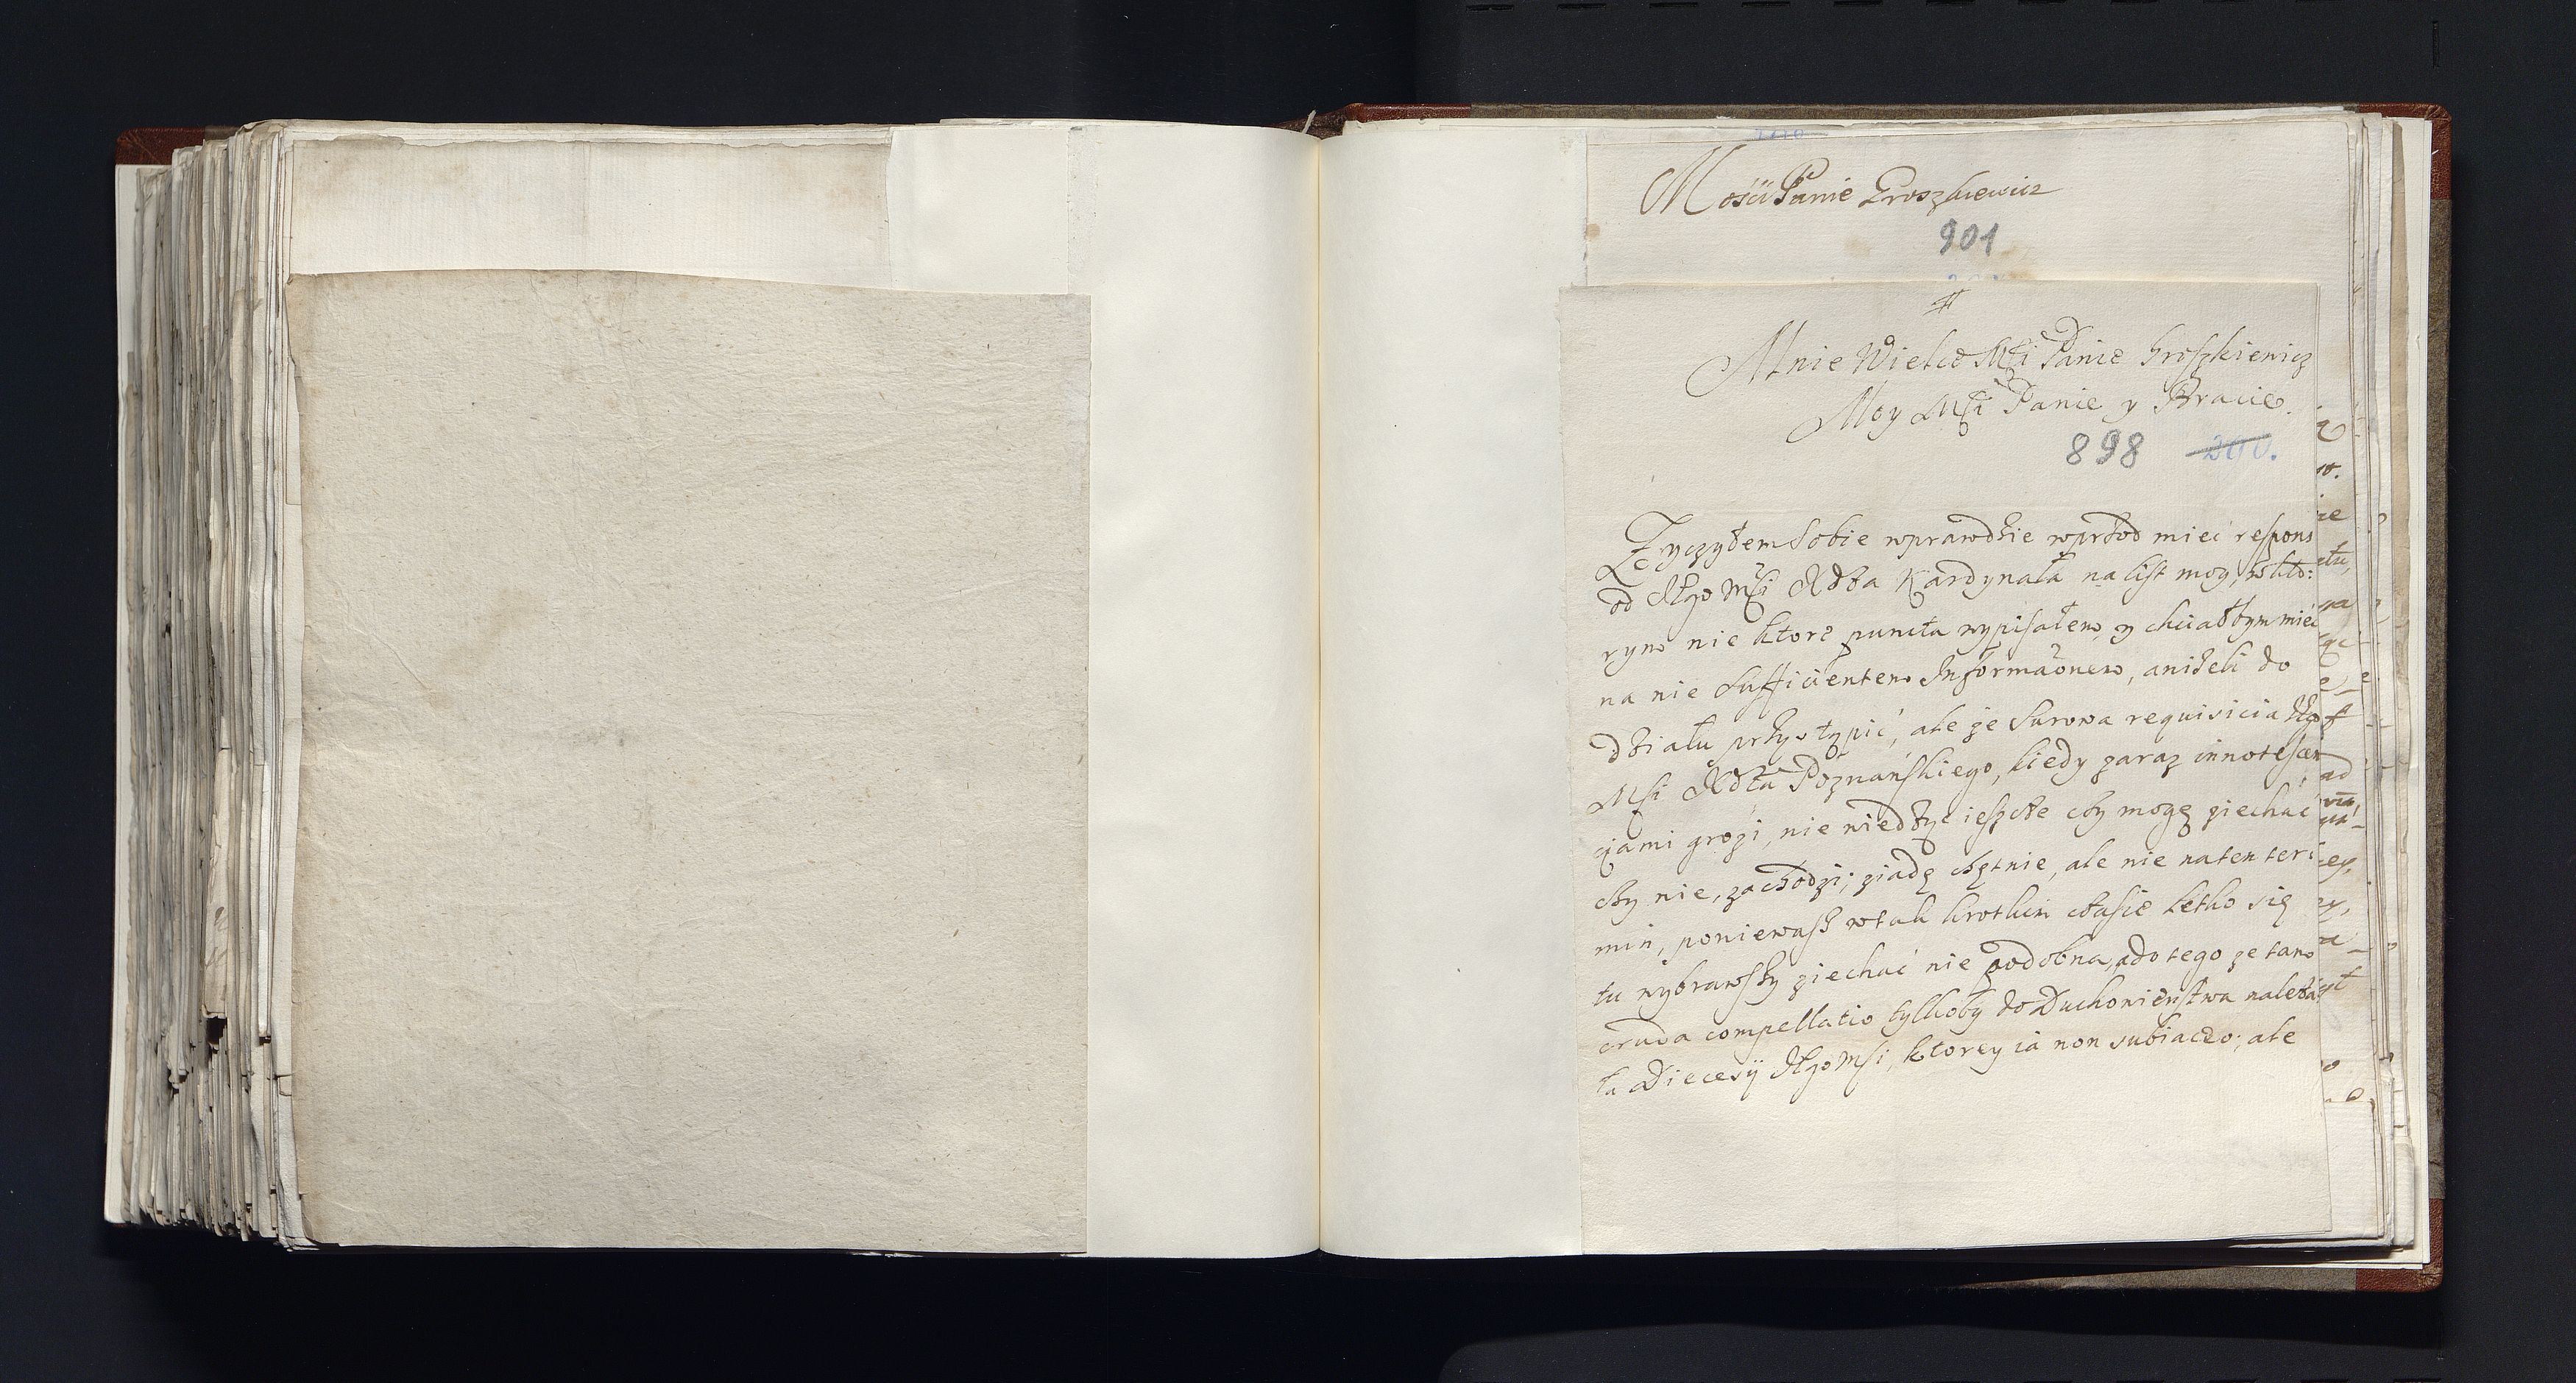 Mości Panie Groszkiewicz
901
#
Mnie Wielce Mśi Panie Groszkiewicz
Moy Mśi Panie y Bracie.
898 200.
Zyczyłem sobie wprawdzie wprzod mieć respons
od Jego Mśi Xdza Kardynała na list moy, w kto:
rym nie ktore puncta wypisałem, y chciałbym mieć
na nie sufficientem Informaōnem, aniżeli do
działu przystąpić, ale ze surowa requisicia Jego
Mśi Xdza Poznańskiego, kiedy zaraz innotescen
cyami grozi, nie wiedząc ieszcze czy mogę ziechać
czy nie, zachodzi; ziadę chętnie, ale nie na ten ter
min, poniewasz w tak krotkim czasie letko się
tu wybrawszy ziechać nie podobna, a do tego ze tam
cruda compellatio tylkoby do Duchowieństwa należa
ła Diecesij Jego Mśi, ktorey ia non subiaceo; ale